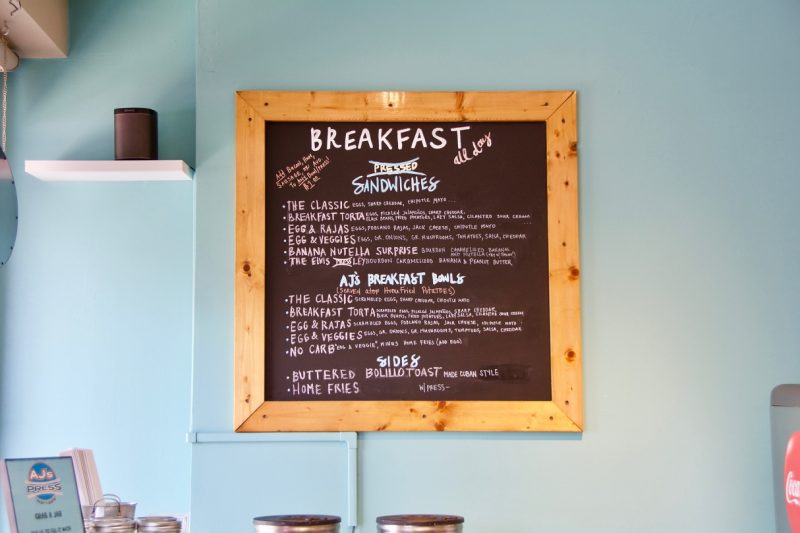 BREAKFAST
all day
Add Bacon, Ham,
Sausage, or Avo
To Any Item/Press!
$1.00
PRESSED
SANDWICHES
• THE CLASSIC EGGS, SHARP CHEDDAR, CHIPOTLE MAYO...
• BREAKFAST TORTA EGGS, PICKLED JALAPEÑOS, SHARP CHEDDAR,
BLACK BEANS, FRIED POTATOES, LAZY SALSA, CILANTRO SOUR CREAM
• EGG & RAJAS EGGS, POBLANO RAJAS, JACK CHEESE, CHIPOTLE MAYO
• EGG & VEGGIES EGGS, GR. ONIONS, GR. MUSHROOMS, TOMATOES, SALSA, CHEDDAR
• BANANA NUTELLA SURPRISE BOURBON CARAMELIZED BANANAS
AND NUTELLA
• THE ELVIS PRESSLEY BOURBON CARAMELIZED BANANA & PEANUT BUTTER
AJ'S BREAKFAST BOWLS
(SERVED atop Home Fried POTATOES)
• THE CLASSIC SCRAMBLED EGGS, SHARP CHEDDAR, CHIPOTLE MAYO
• BREAKFAST TORTA SCRAMBLED EGGS, PICKLED JALAPEÑOS, SHARP CHEDDAR,
BLACK BEANS, FRIED POTATOES, LAZY SALSA, CILANTRO SOUR CREAM
• EGG & RAJAS SCRAMBLED EGGS, POBLANO RAJAS, JACK CHEESE, CHIPOTLE MAYO
• EGG & VEGGIES EGGS, GR. ONIONS, GR. MUSHROOMS, TOMATOES, SALSA, CHEDDAR
• NO CARB "EGG & VEGGIE", MINUS HOME FRIES (ADD EGG)
SIDES
• BUTTERED BOLILLO TOAST MADE CUBAN STYLE
• HOME FRIES W/PRESS-
AJ's
PRESS
GRAB A JAR
Coca